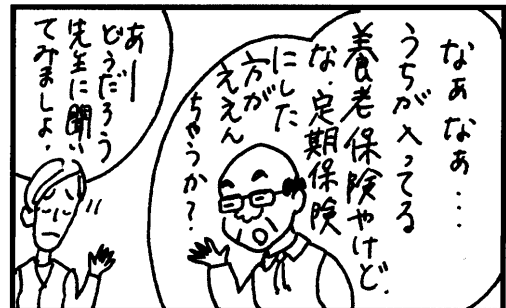 なぁなぁ…
うちが入ってる
養老保険やけど.
な.定期保険
にした
方が
ええん
ちゃうか?
あー
どうだろう
先生に聞い
てみましょ.